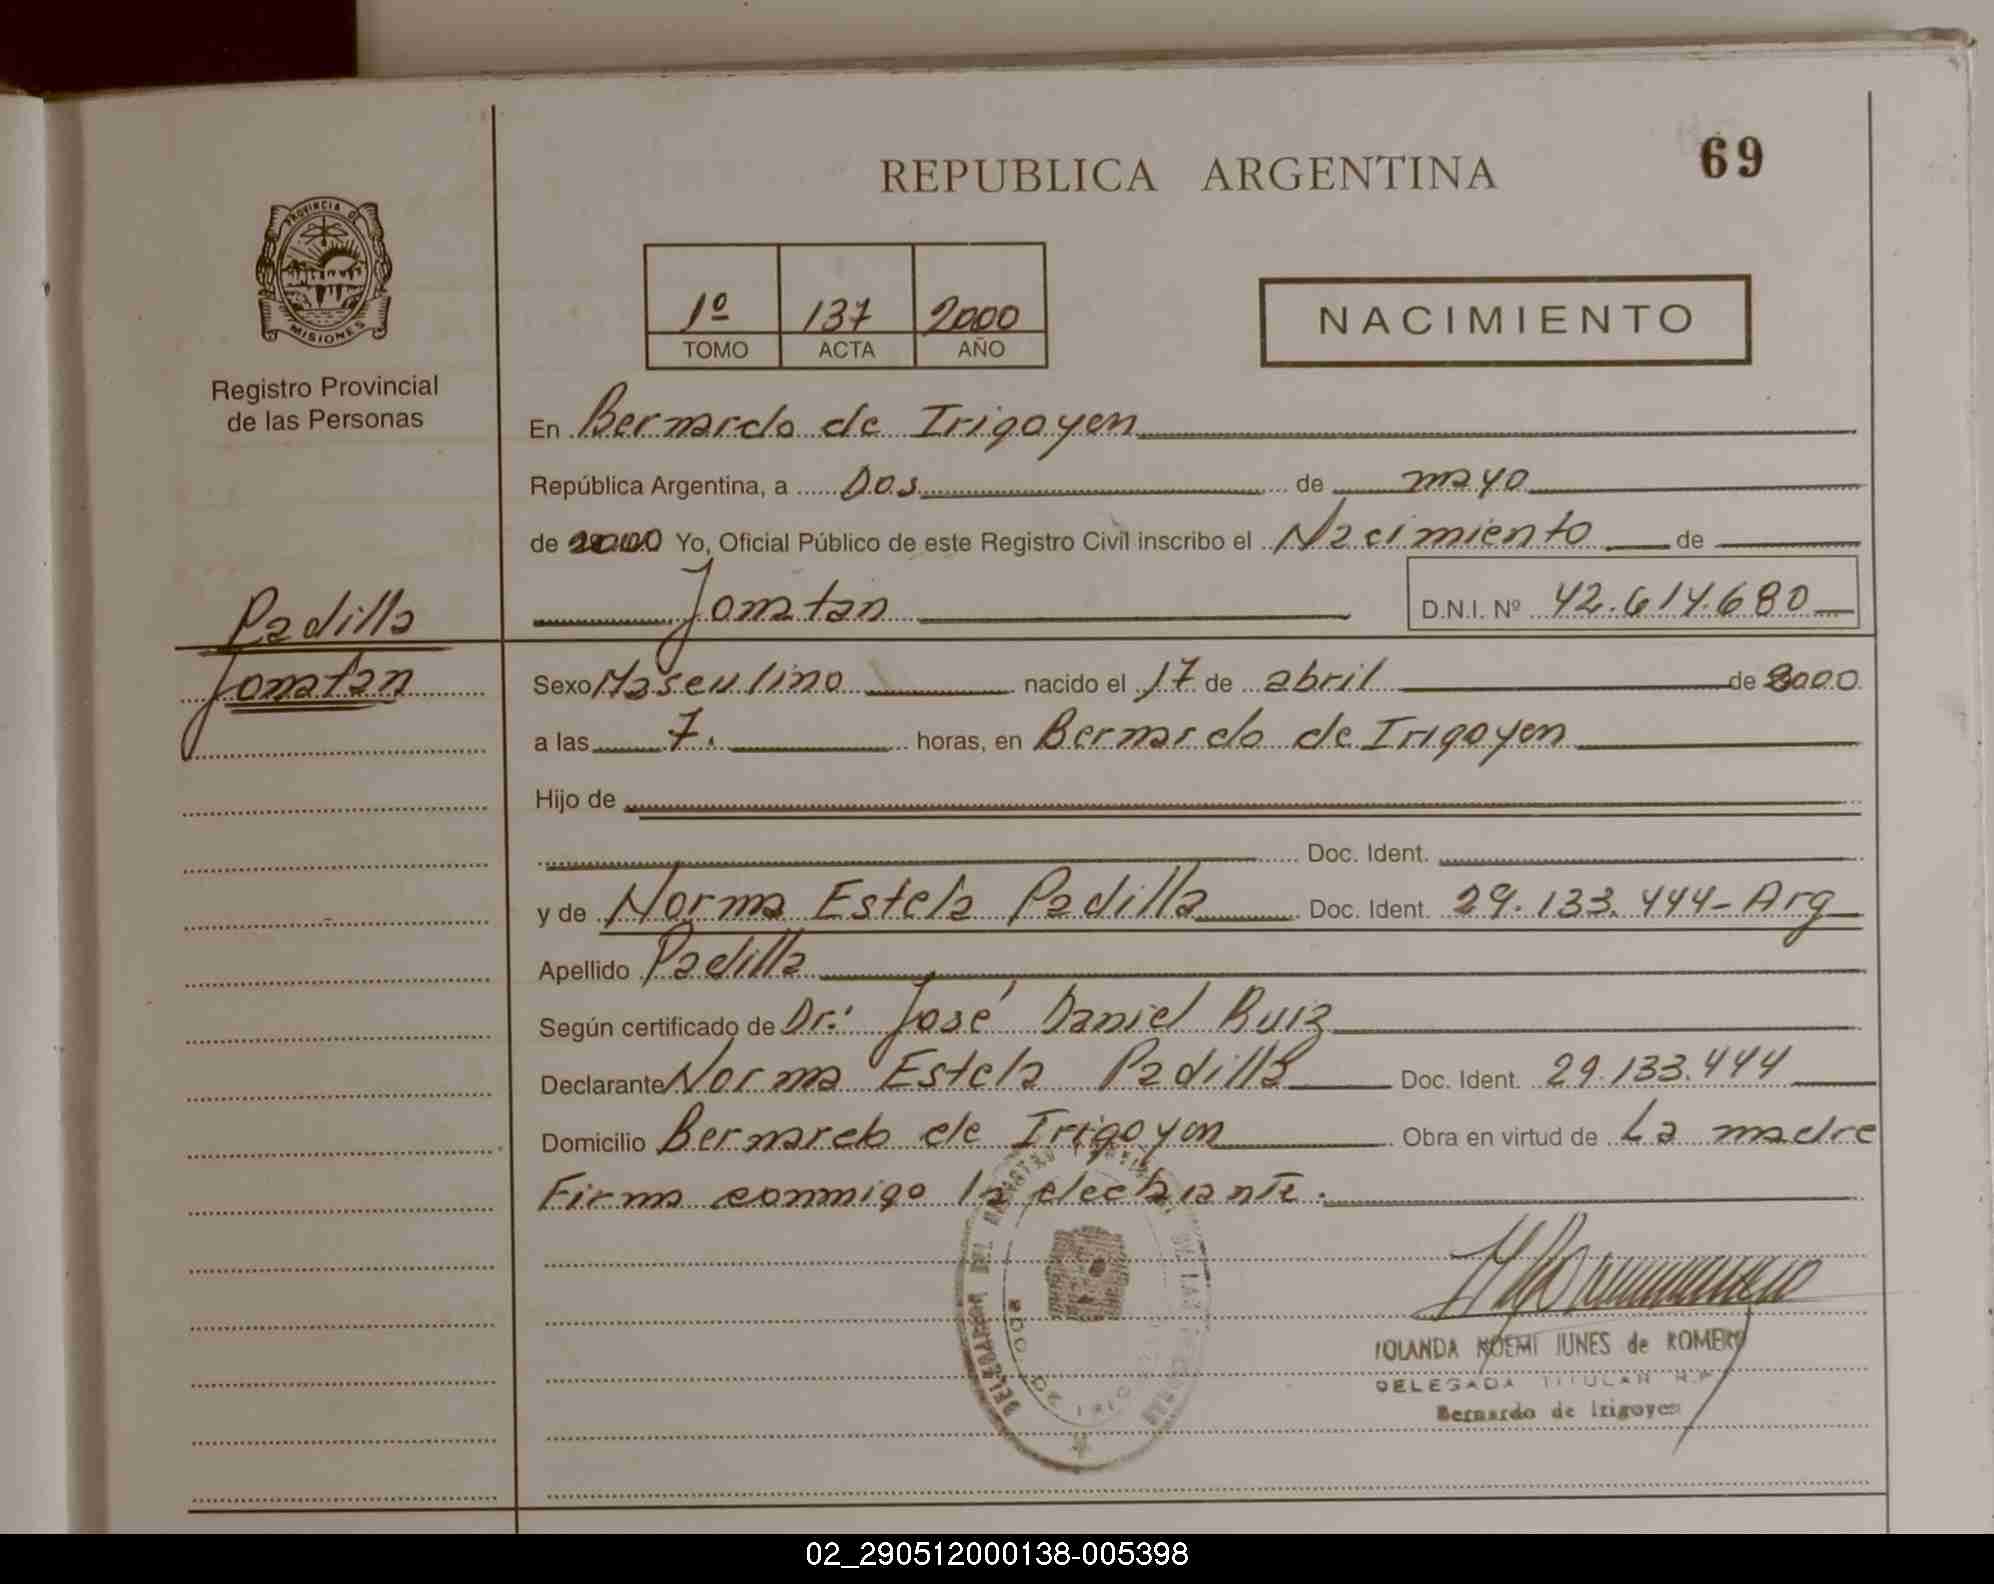 REPUBLICA ARGENTINA
69
PROVINCIA DE
MISIONES
Registro Provincial
de las Personas
1º 137 2000
TOMO ACTA AÑO
NACIMIENTO
En Bernardo de Irigoyen
República Argentina, a Dos de mayo
de 2000 Yo, Oficial Público de este Registro Civil inscribo el Nacimiento de
Jonatan D.N.I. Nº 42.614.680
Padilla
Jonatan
Sexo Masculino nacido el 17 de abril de 2000
a las 7. horas, en Bernardo de Irigoyen
Hijo de
Doc. Ident.
y de Norma Estela Padilla Doc. Ident. 29.133.444 - Arg
Apellido Padilla
Según certificado de Dr. José Daniel Ruiz
Declarante Norma Estela Padilla Doc. Ident. 29.133.444
Domicilio Bernardo de Irigoyen Obra en virtud de La madre
Firma conmigo la declarante.
DELEGACION DEL REGISTRO DE LAS PERSONAS
BDO. DE IRIGOYEN
IOLANDA NOEMI JUNES de ROMERO
DELEGADA TITULAR R.P.
Bernardo de Irigoyen
02_290512000138-005398